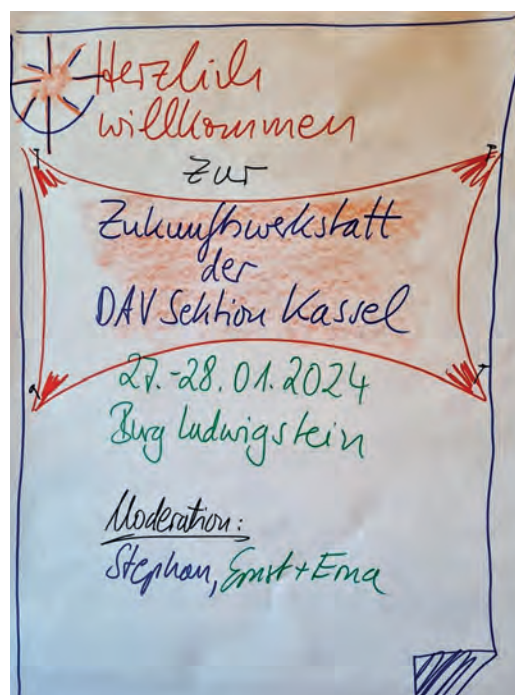 Herzlich
willkommen
zur
Zukunftswerkstatt
der
DAV Sektion Kassel
27.-28.01.2024
Burg Ludwigstein
Moderation:
Stephan, Ernst + Erna